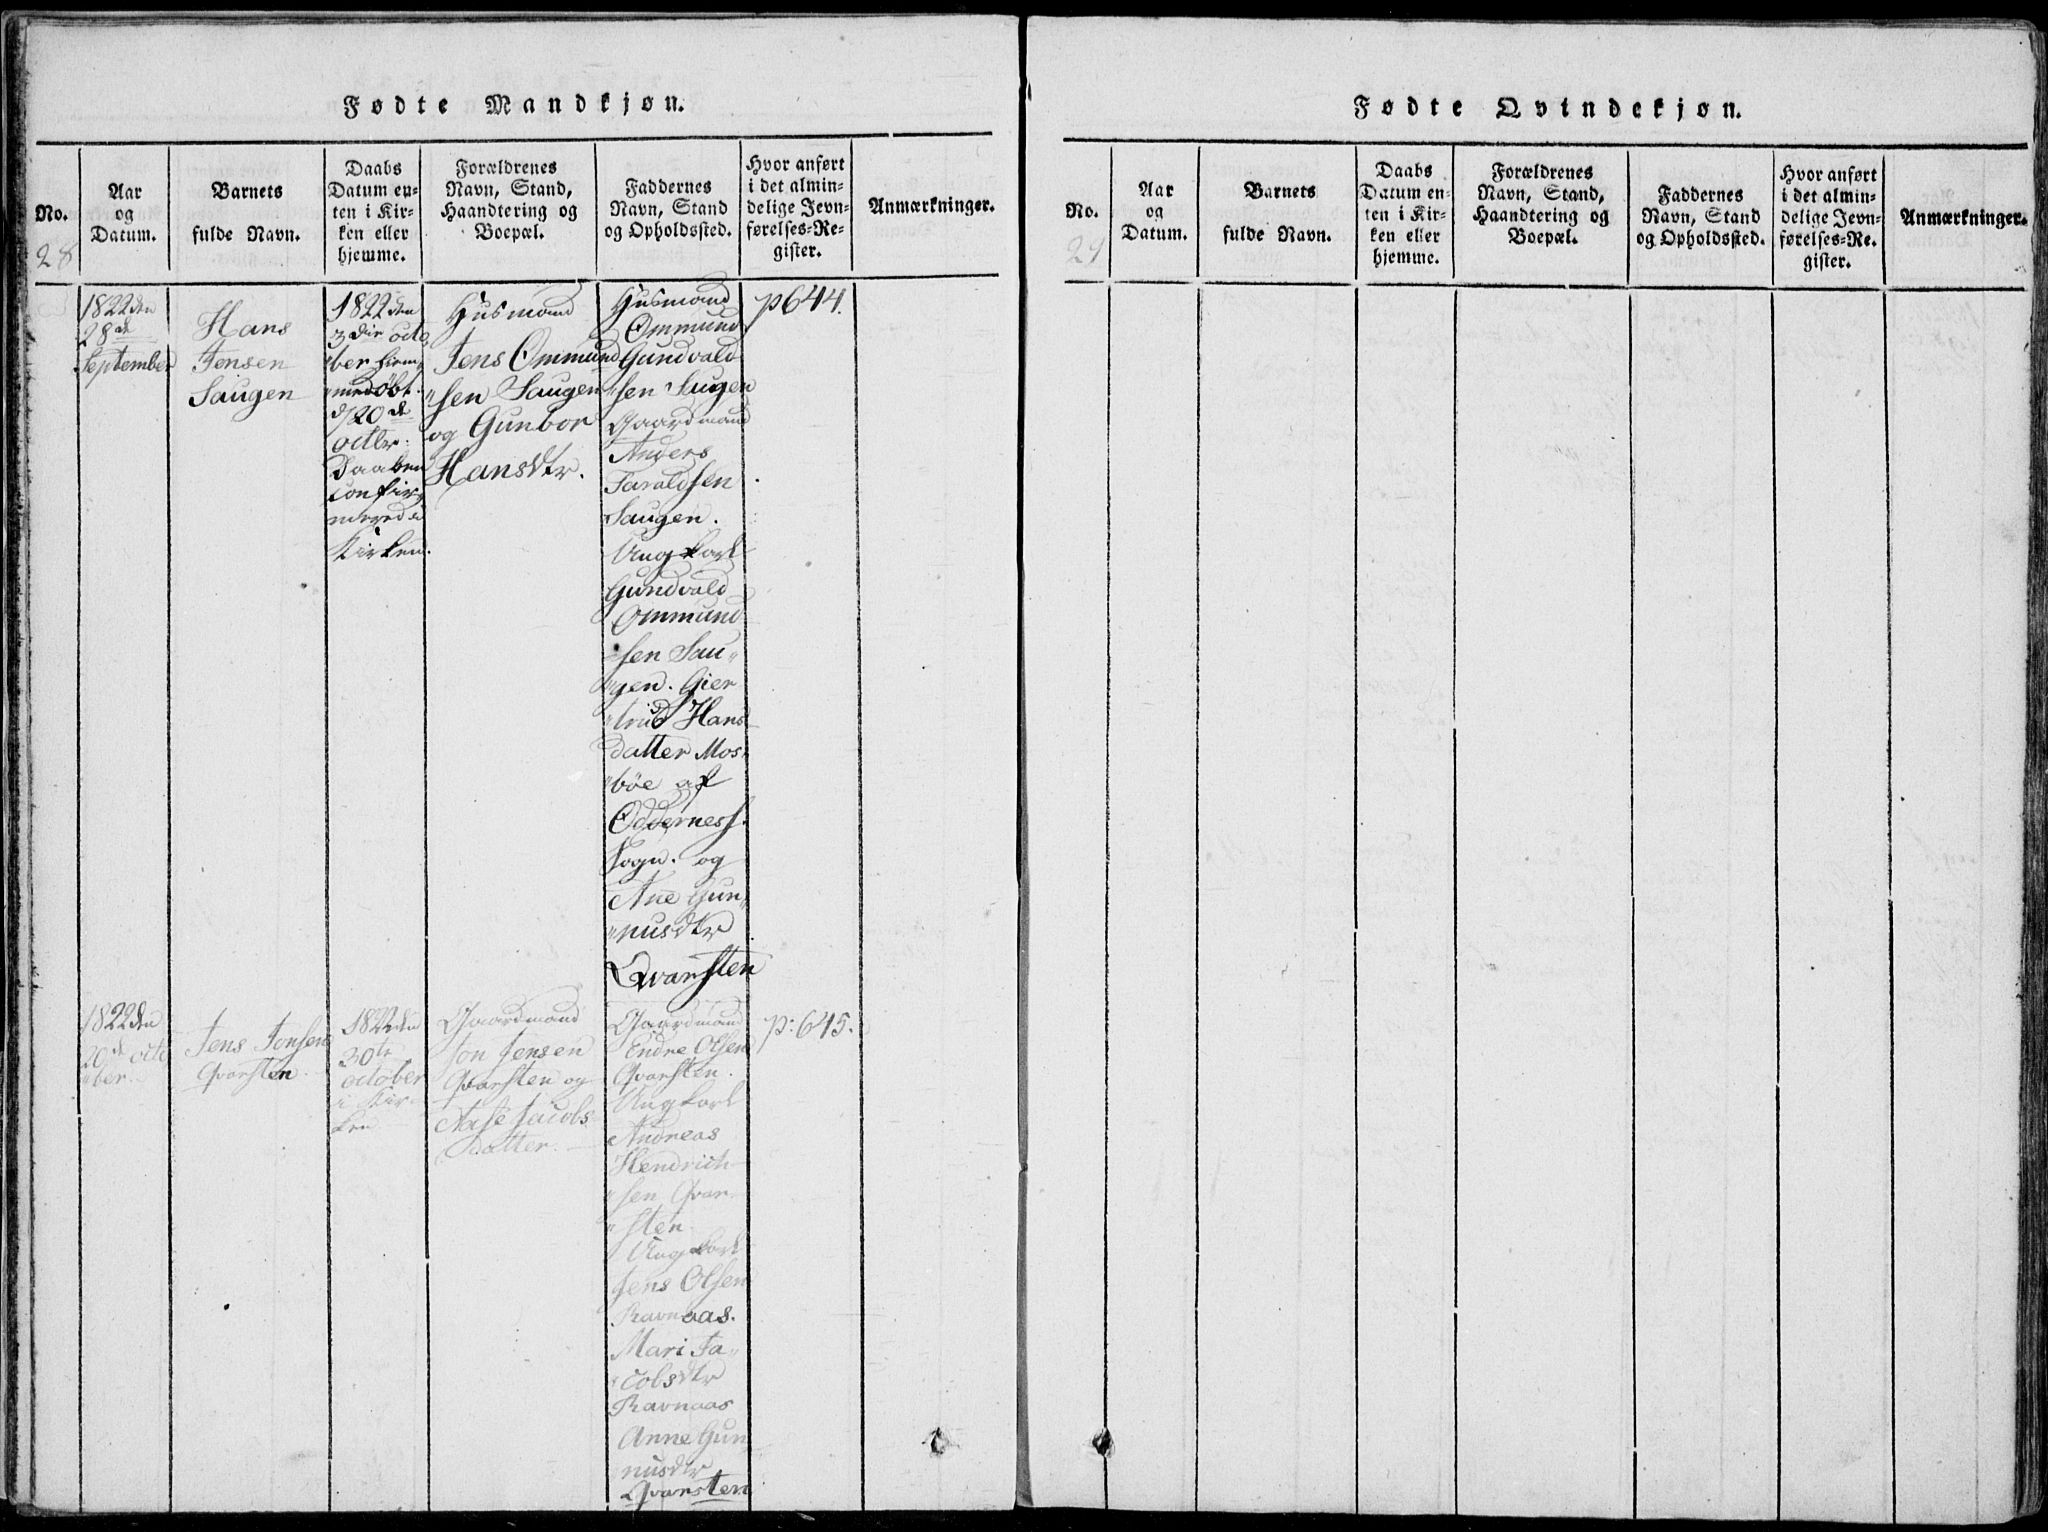 Fødte Mandkjøn.
No.
Aar
og
Datum.
Barnets
fulde Navn.
Daabs
Datum en-
ten i Kir-
ken eller
hjemme.
Forældrenes
Navn, Stand,
Haandtering og
Boepæl.
Faddernes
Navn, Stand
og Opholdssted.
Hvor anført
i det almin-
delige Jevn-
førelses-Re-
gister.
Anmærkninger.
28
1822 den
28de
September
Hans
Jensen
Saugen
1822 den
3die octo
ber hiem
med
d/20de
octbr:
Daaben
confir
mered i
Kirken.
Husmand
Jens Ommund
"sen Saugen
og Gunbor
Hansdtr.
Husmand
Ommund
Gundvald
"sen Saugen
Gaardmand
Anders
Taraldsen
Saugen.
Ungkarl
Gundvald
Ommund
"sen Sau"
"gen. Gier
"trud Hans
datter Mos"
"böe af
Odderness.
Sogn. og
Ane Gun"
"nusdtr
Qvarsten
p 644.
1822 den
20de octo
"ber.
Jens Jonsen
Qvarsten
1822 den
30te
october
i Kir-
ken
Gaardmand
Jon Jensen
Qvarsten og
Aase Jacobs
datter.
Gaardmand
Endre Olsen
Qvarsten.
Ungkarl
Andreas
Hendrich
"sen Qvar
"sten
Ungkarl
Jens Olsen
Ravnaas.
Mari Ja"
"cobsdtr
Ravnaas
Anne Gun
nusdtr
Qvarsten
p: 645.
Fødte Qvindekjøn.
No.
Aar
og
Datum.
Barnets
fulde Navn.
Daabs
Datum en-
ten i Kir-
ken eller
hjemme.
Forældrenes
Navn, Stand,
Haandtering og
Boepæl.
Faddernes
Navn, Stand
og Opholdssted.
Hvor anført
i det almin-
delige Jevn-
førelses-Re-
gister.
Anmærkninger.
29